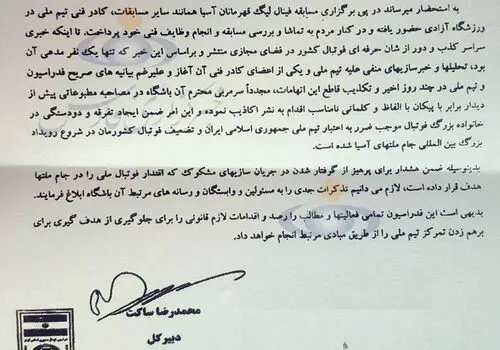 به استحضار میرساند در پی برگزاری مسابقه فینال لیگ قهرمانان آسیا همانند سایر مسابقات، کادر فنی تیم ملی در
ورزشگاه آزادی حضور یافته و در کنار مردم به تماشا و بررسی مسابقه و انجام وظایف فنی خود پرداخت. تا اینکه خبری
سراسر کذب و دور از شان حرفه ای فوتبال کشور در فضای مجازی منتشر و براساس این خبر که تنها یک نفر مدعی آن
بود، تحلیلها و خبرسازیهای منفی علیه تیم ملی و یکی از اعضای کادر فنی آن آغاز و علیرغم بیانیه های صریح فدراسیون
و تیم ملی در چند روز اخیر و تکذیب قاطع این اتهامات، مجدداً سرمربی محترم آن باشگاه در مصاحبه مطبوعاتی پیش از
دیدار برابر با پیکان با الفاظ و کلماتی نامناسب اقدام به نشر اکاذیب نموده و این امر ضمن ایجاد تفرقه و دودستگی در
خانواده بزرگ فوتبال موجب ضرر به اعتبار تیم ملی جمهوری اسلامی ایران و تضعیف فوتبال کشورمان در شروع رویداد
بزرگ بین المللی جام ملتهای آسیا شده است.
بدینوسیله ضمن هشدار برای پرهیز از گرفتار شدن در جریان سازیهای مشکوک که اقتدار فوتبال ملی را در جام ملتها
هدف قرار داده است، لازم می دانیم تذکرات جدی را به مسئولین و وابستگان و رسانه های مرتبط آن باشگاه ابلاغ فرمایند.
بدیهی است این فدراسیون تمامی فعالیتها و مطالب را رصد و اقدامات لازم قانونی را برای جلوگیری از هدف گیری برای
برهم زدن تمرکز تیم ملی را از طریق مبادی مرتبط انجام خواهد داد.
محمدرضا ساکت
دبیرکل